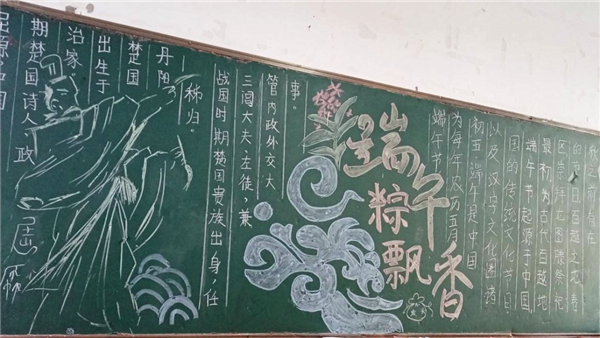 屈原 中国
期楚国诗人、政
治家。
出生于
楚国
丹阳
秭归。
战国时期楚国贵族出身，任
三闾大夫、左徒，兼
管内政外交大
事。
端午
粽飘香
端午节
为每年农历五月
初五 端午是中国
以及汉字文化圈诸
国的传统文化节日。
端午节起源于中国
最初为古代百越地
图腾祭祀
的节日百越之地春
存在